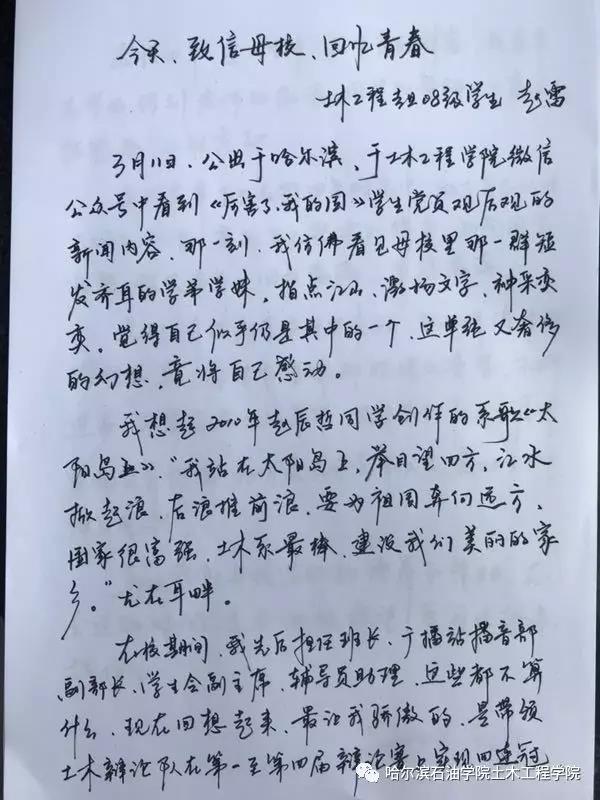 今天、致信母校、回忆青春
土木工程专业08级学生 赵雷
3月11日、公出于哈尔滨、于土木工程学院微信
公众号中看到《厉害了、我的国》学生党员观后观的
新闻内容、那一刻、我仿佛看见母校里那一群短
发齐耳的学弟学妹、指点江山、激扬文字、神采奕
奕。觉得自己似乎仍是其中的一个、这单纯又奢侈
的幻想、竟将自己感动。
我想起2010年赵辰哲同学创作的系歌《太
阳岛上》、“我站在太阳岛上、举目望四方、江水
掀起浪、后浪推前浪、要为祖国奔向远方、
国家很富强、土木系最棒、建设我们美丽的家
乡。”尤在耳畔。
在校期间、我先后担任班长、广播站播音部
副部长、学生会副主席、辅导员助理、这些都不算
什么、现在回想起来、最让我骄傲的、是带领
土木辩论队在第一至第四届辩论赛上实现四连冠
哈尔滨石油学院土木工程学院